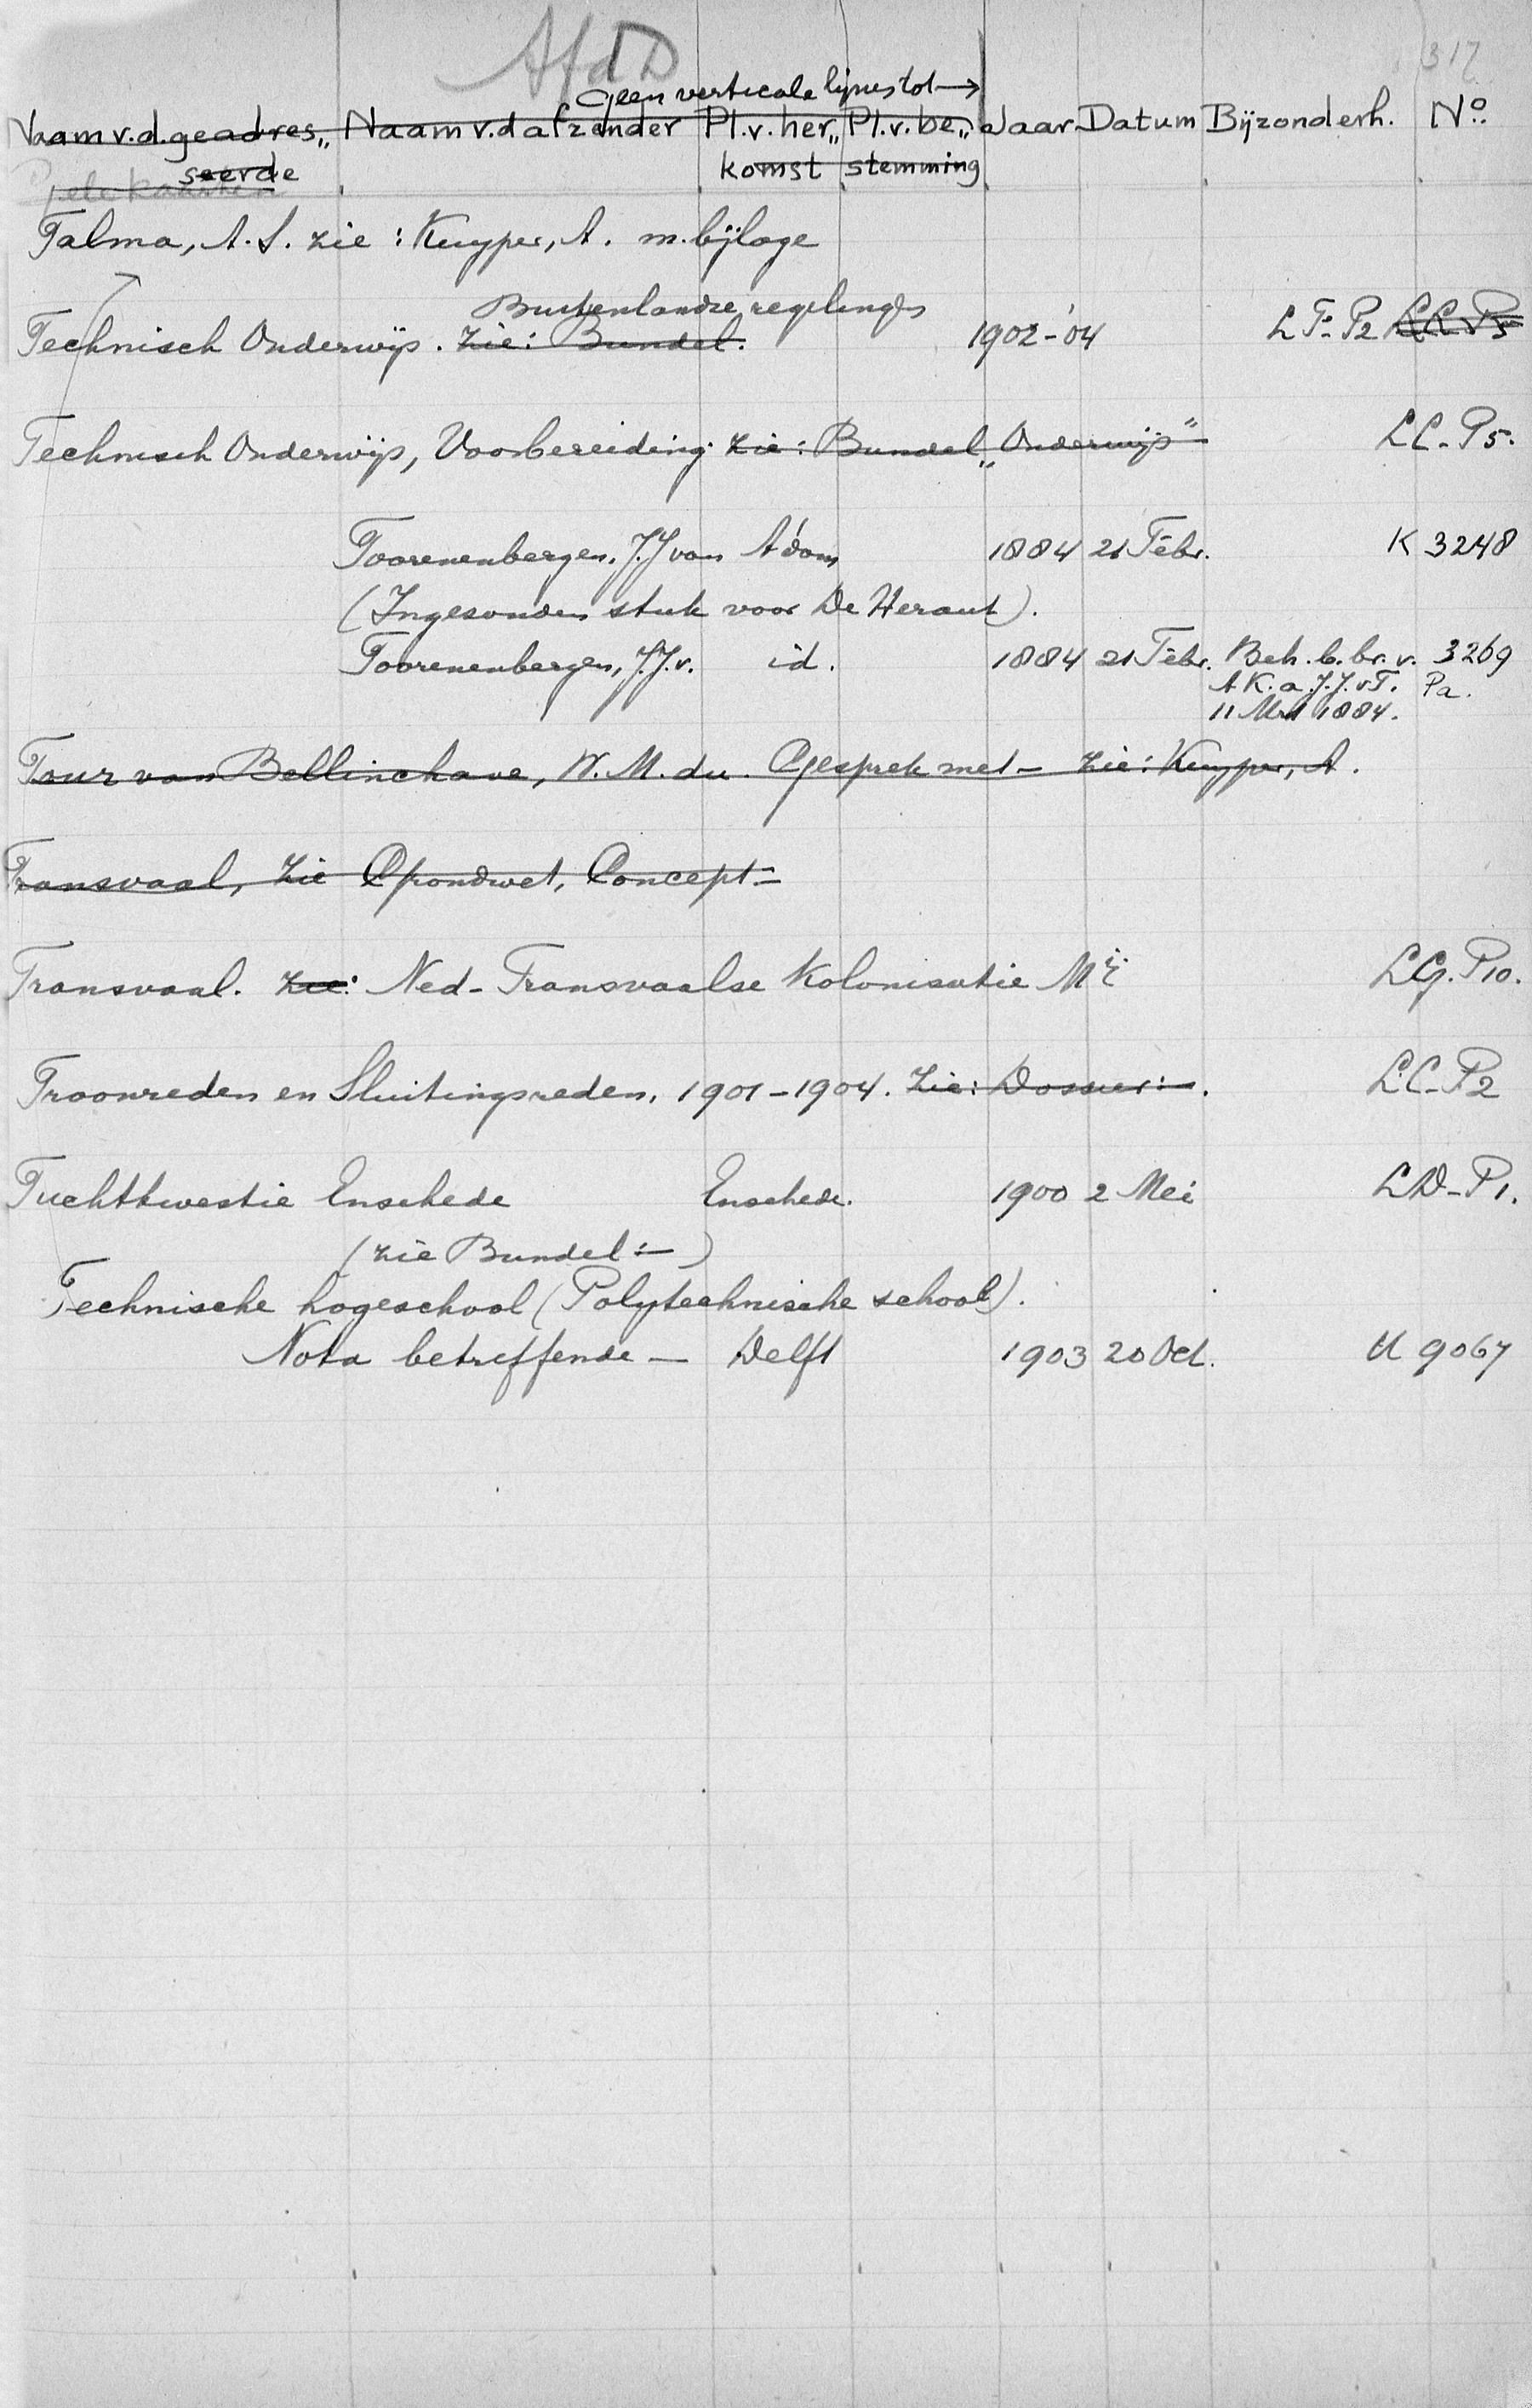 Afd D
317
Geen verticale lijnen tot →
Naam v.d. geadres„ Naam v.d afzender Pl.v.her„ Pl.v.be„ Jaar Datum Bijzonderh. No.
seerde komst stemming
Talma, A.S. zie : Kuyper, A. m. bijlage
Buitenlandse regelingen
Technisch Onderwijs. Zie: Bundel. 1902-'04 LF-P2 LC-P5
Technisch Onderwijs, Voorbereiding. Zie: Bundel „Onderwijs" LC-P5.
Toorenenbergen, J.J van A'dam 1884 21 Febr. K 3248
(Ingezonden stuk voor De Heraut).
Toorenenbergen, J.J.v. id. 1884 21 Febr. Beh. b. br. v. 3269
A K. a J.J. v T. Pa.
11 Mrt 1884.
Tour van Bellinchave, W.M. du. Gesprek met – Zie: Kuyper, A.
Transvaal, Zie Grondwet, Concept-
Transvaal. Zie: Ned-Transvaalse Kolonisatie Mij LG. P10.
Troonreden en Sluitingsreden, 1901-1904. Zie: Dossier :-. LC-P2
Tuchtkwestie Enschede Enschede. 1900 2 Mei LD-P1.
(zie Bundel :-)
Technische hogeschool (Polytechnische school).
Nota betreffende – Delft 1903 20 Oct. U 9067